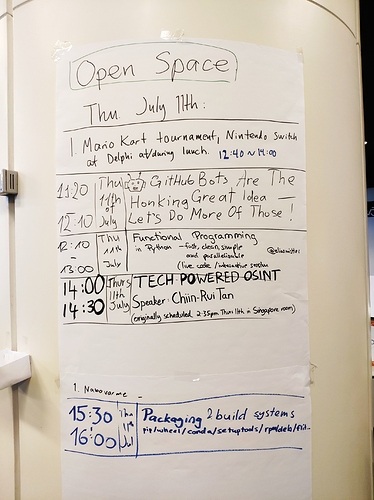 Open Space
Thu. July 11th:
1. Mario Kart tournament, Nintendo Switch
at Delphi at/during lunch. 12:40 ~ 14:00
11:20 - 12:10 Thu 11th of July GitHub Bots, Are The
Honking Great Idea —
Let's Do More Of Those!
12:10 - 13:00 Thu 11th July Functional Programming
in Python - fast, clean, simple
and parallelisable
(live code / interactive session
14:00 14:30 Thurs 11th July TECH POWERED OSINT
Speaker: Chiin-Rui Tan
(originally scheduled 2:35pm Thurs 11th in Singapore room)
1.
15:30 16:00 Thu 11th Jul Packaging & build systems
pip/wheel/conda/setuptools/rpm/deb/